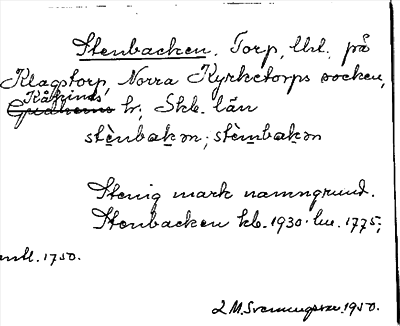 Stenbacken. Torp, lht. på
Klagstorp, Norra Kyrketorps socken,
Kåkinds
Gudhems hr, Skb. län
stènbakən; stèmbakən
Stenig mark namngrund.
Stenbacken kb. 1930. hu. 1775;
1750.
L M. Svenungsson 1950.